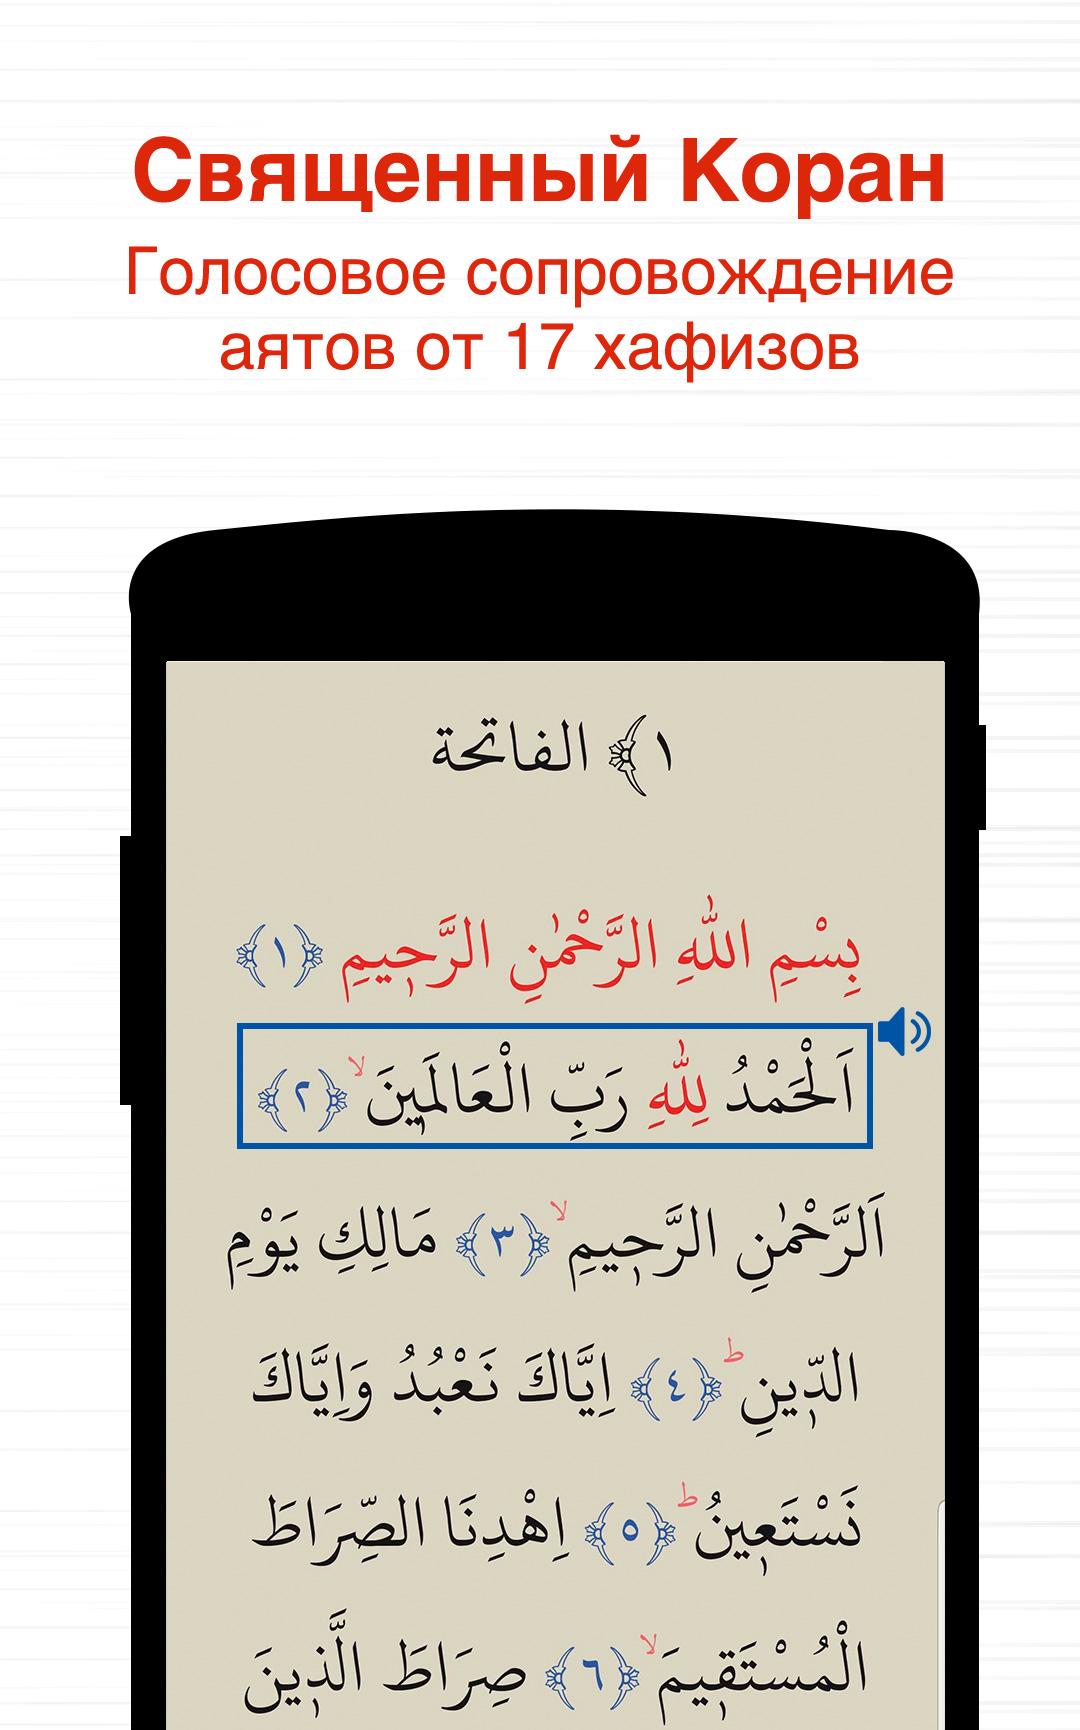 Священный Коран
Голосовое сопровождение
аятов от 17 хафизов
١﴾ الفاتحة
بِسْمِ اللّٰهِ الرَّحْمٰنِ الرَّح۪يمِ ﴿١﴾
اَلْحَمْدُ لِلّٰهِ رَبِّ الْعَالَم۪ينَۙ ﴿٢﴾
اَلرَّحْمٰنِ الرَّح۪يمِۙ ﴿٣﴾ مَالِكِ يَوْمِ
الدّ۪ينِۜ ﴿٤﴾ اِيَّاكَ نَعْبُدُ وَاِيَّاكَ
نَسْتَع۪ينُۜ ﴿٥﴾ اِهْدِنَا الصِّرَاطَ
الْمُسْتَق۪يمَۙ ﴿٦﴾ صِرَاطَ الَّذ۪ينَ